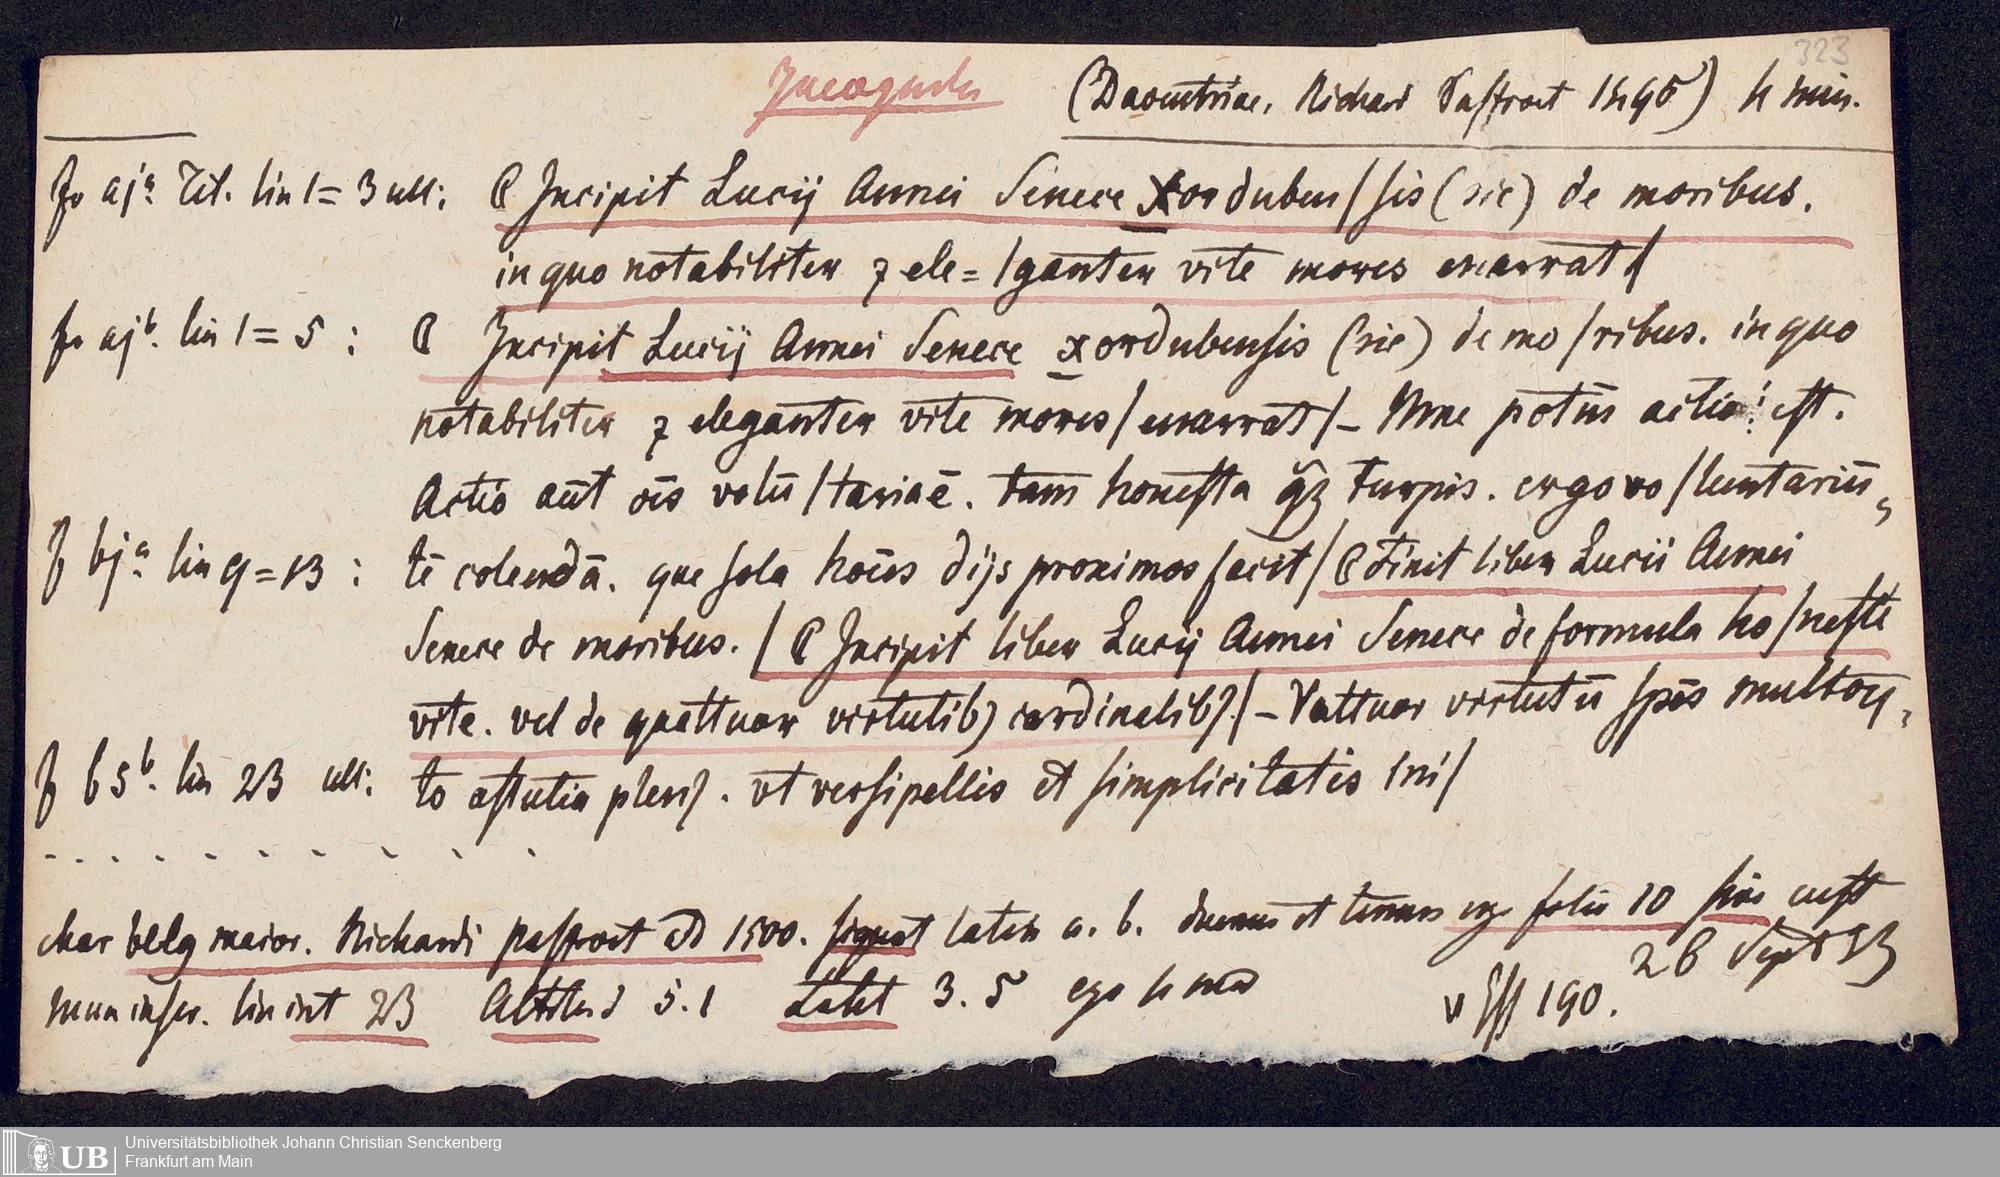 323
Incognita (Daventriae, Richard Paffroet 1495) h min.
fo aja. Tit. lin 1 = 3 ult: ₵ Incipit Lucij Annei Senece xorduben/sis (sic) de moribus.
in quo notabiliter ⁊ ele=/ganter vite mores enarrat/
fo ajb. lin 1 = 5 : ₵ Incipit Lucij Annei Senece xordubensis (sic) de mo/ribus. in quo
notabiliter ⁊ eleganter vite mores/enarrat/–
Actio aūt oīs volū/taria ē. tam honesta turpis. ergo vo/luntariū
f bja. lin 9 = 13 : tē colendā. que sola hoīes dijs proximos facit/₵ Finit liber Lucii Annei
Senece de moribus./₵ Incipit liber Lucij Annei Senece de formula ho/neste
vite. vel de quattuor virtutib) cardinalib)/– Vattuor virtutū spēs
f b5b. lin 23 ult: to astutia . vt versipellis et simplicitatis ini/
. . . . . . . . . . .
char belg maior. Richardi paffroet ad 1500. signat later a. b. folia 10 sine cust
num inscr. lin int 23 Altitud 5.1 Latit 3.5 ergo h min
28 Sept 93
v Ess 190.
Universitätsbibliothek Johann Christian Senckenberg
Frankfurt am Main
UB